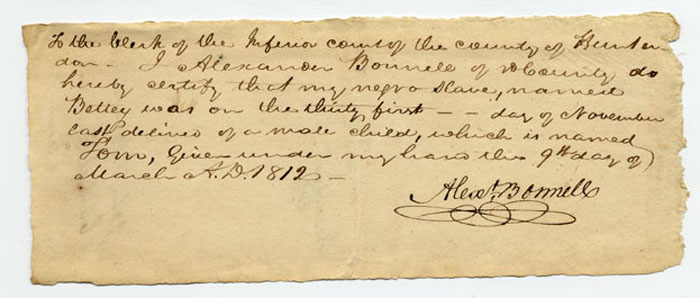 To the Clerk of the Inferior court of the county of Hunter
don - I Alexander Bonnell of sd County do
hereby certify that my negro slave, named
Bettey was on the thirty first - - day of November
last delived of a male child, which is named
Tom, Given under my hand this 9th day of
March A.D. 1812 -
Alexr. Bonnell